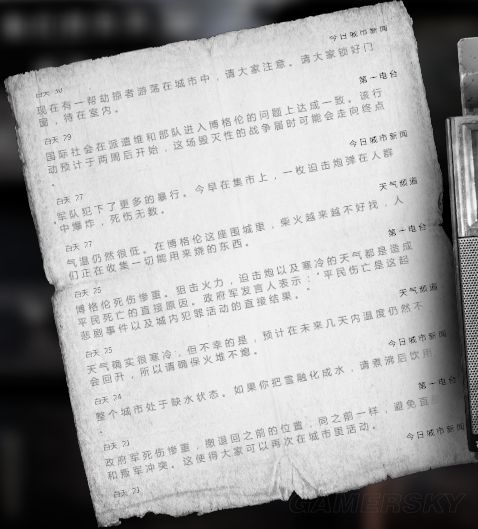 今日城市新闻
白天 30
现在有一帮劫掠者游荡在城市中，请大家注意。请大家锁好门
窗，待在室内。
第一电台
白天 29
国际社会在派遣维和部队进入博格伦的问题上达成一致。该行
动预计于两周后开始，这场毁灭性的战争届时可能会走向终点
。
今日城市新闻
白天 27
军队犯下了更多的暴行。今早在集市上，一枚迫击炮弹在人群
中爆炸，死伤无数。
天气频道
白天 27
气温仍然很低。在博格伦这座围城里，柴火越来越不好找，人
们正在收集一切能用来烧的东西。
第一电台
白天 25
博格伦死伤惨重。狙击火力，迫击炮以及寒冷的天气都是造成
平民死亡的直接原因。政府军发言人表示：“平民伤亡是这起
悲剧事件以及城内犯罪活动的直接结果。”
天气频道
白天 25
天气确实很寒冷，但不幸的是，预计在未来几天内温度仍然不
会回升，所以请确保火堆不熄。
今日城市新闻
白天 24
整个城市处于缺水状态。如果你把雪融化成水，请煮沸后饮用
。
第一电台
白天 23
政府军死伤惨重，撤退回之前的位置，同之前一样，避免直
和叛军冲突。这使得大家可以再次在城市里活动。
今日城市新闻
白天 23
GAMERSKY